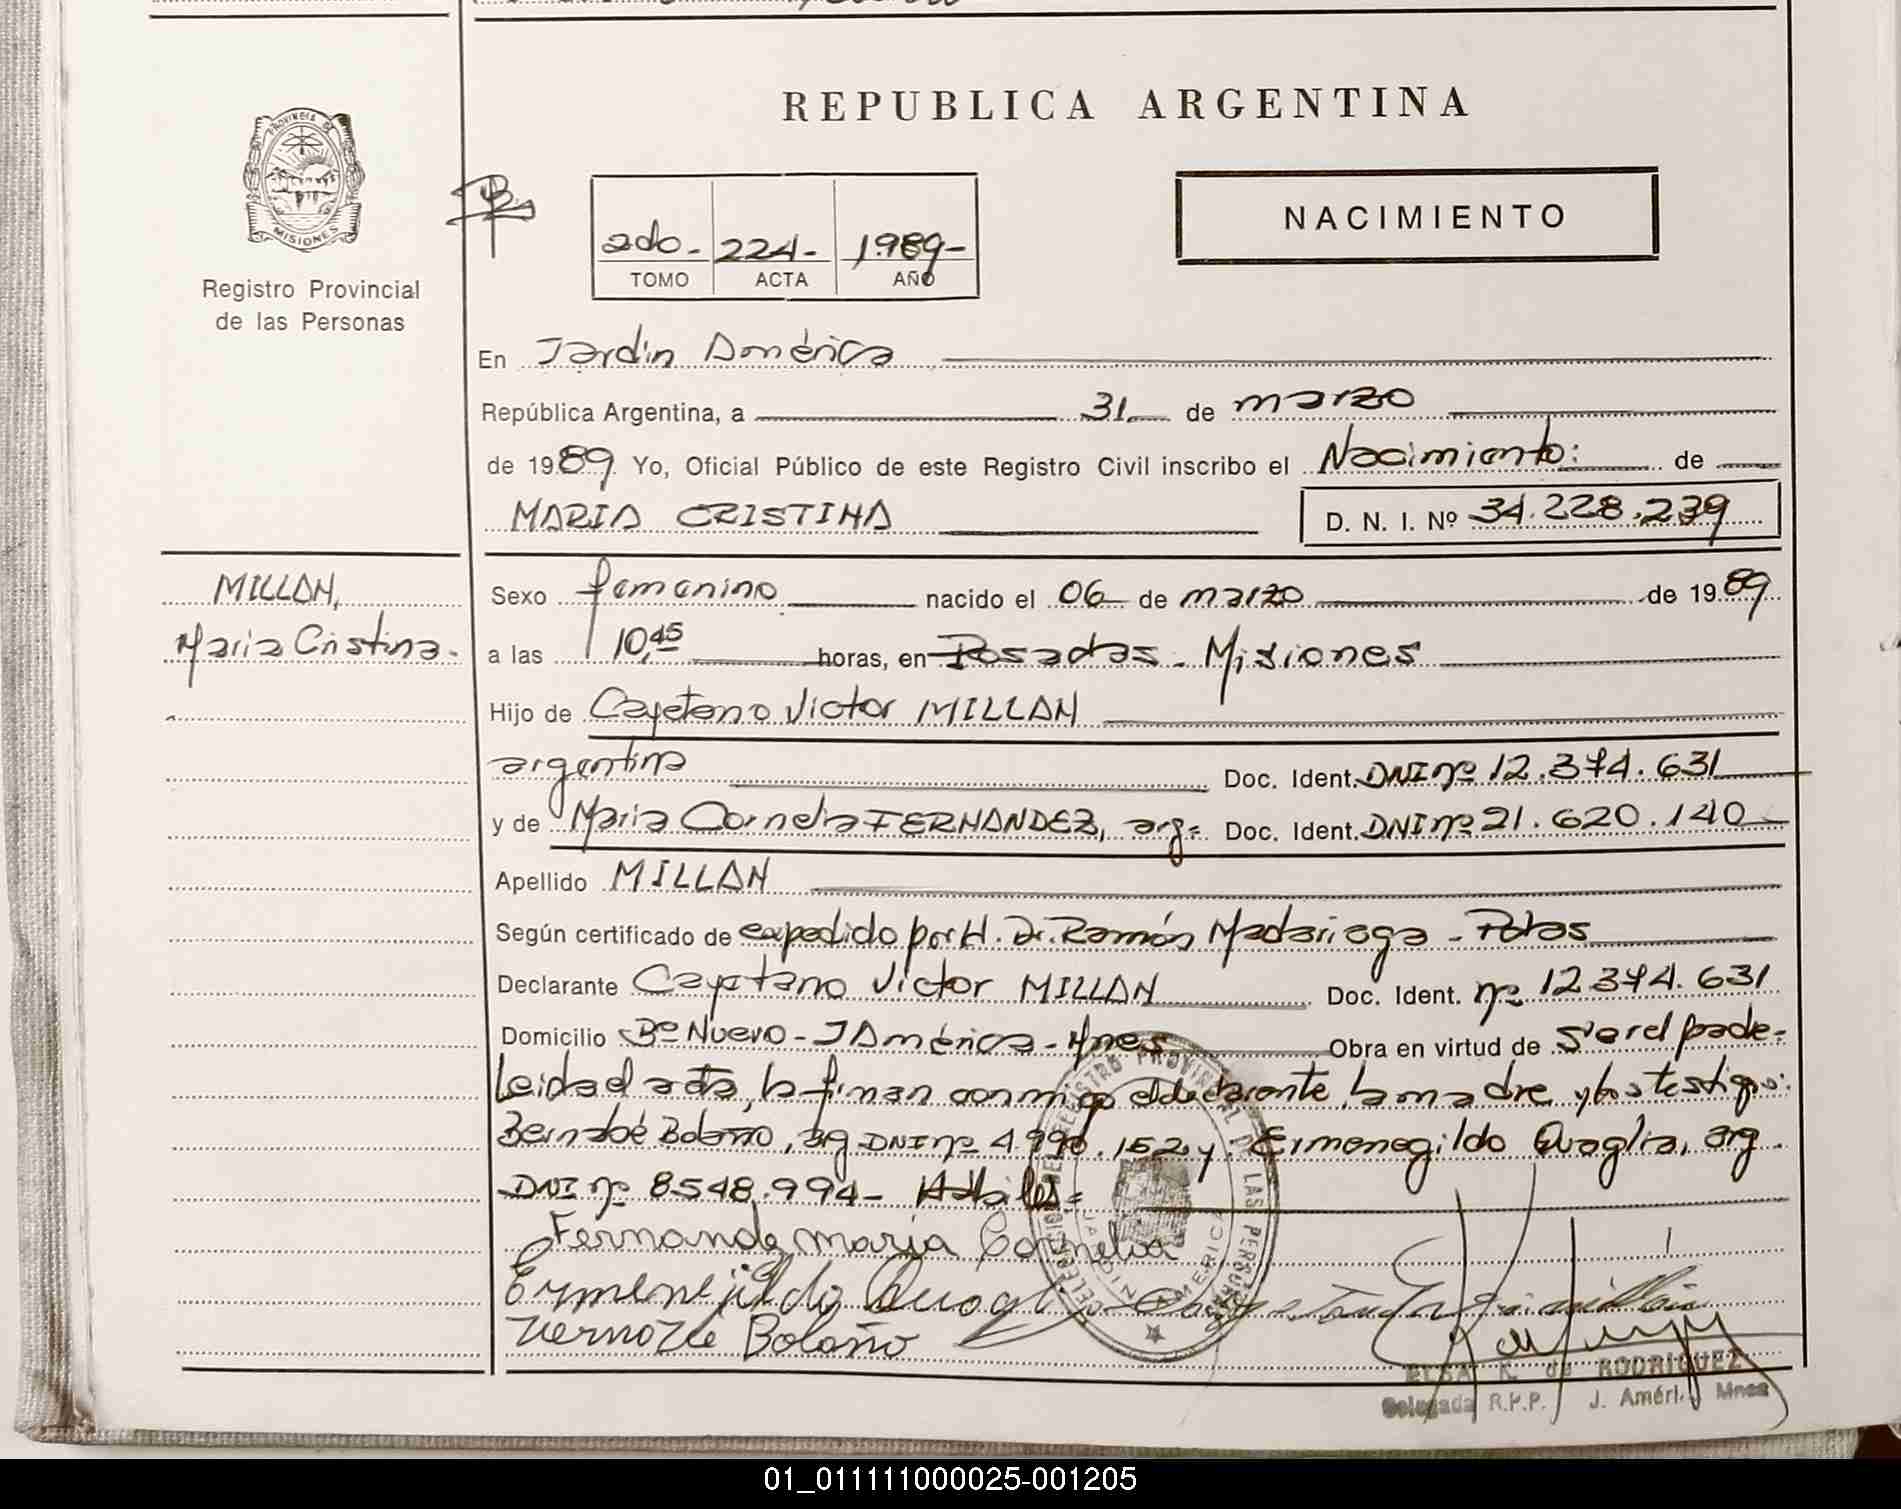 REPUBLICA ARGENTINA
PROVINCIA DE
MISIONES
Registro Provincial
de las Personas
2do- 224- 1989-
TOMO ACTA AÑO
NACIMIENTO
En Jardín América
República Argentina, a 31 de marzo
de 1989 Yo, Oficial Público de este Registro Civil inscribo el Nacimiento: de
MARIA CRISTINA
D. N. I. Nº 34.228.239
MILLAN,
Maria Cristina.-
Sexo femenino nacido el 06 de marzo de 1989
a las 10,45 horas, en Posadas - Misiones
Hijo de Cayetano Victor MILLAN
argentina Doc. Ident. DNI nº 12.374.631
y de Maria Cornelia FERNANDEZ, arg= Doc. Ident. DNI nº 21.620.140
Apellido MILLAN
Según certificado de expedido por H. Dr. Ramón Madariaga - Pdas
Declarante Cayetano Victor MILLAN Doc. Ident. nº 12.374.631
Domicilio Bº Nuevo - J América - Mnes Obra en virtud de ser el padre=
Leida el acta, la firman conmigo el declarante, la madre y los testigos:
Bernabé Bolaño, arg DNI nº 4.990.152 y Ermenegildo Avaglia, arg.
DNI nº 8548.994- Hábiles=
Fernandez maria Cornelia
Ermenejildo
Bolaño
DELEGACION DEL REGISTRO PROVINCIAL DE LAS PERSONAS
JARDIN AMERICA
ELSA K. de RODRIGUEZ
Delegada R.P.P. J. Améri. Mnes
01_011111000025-001205